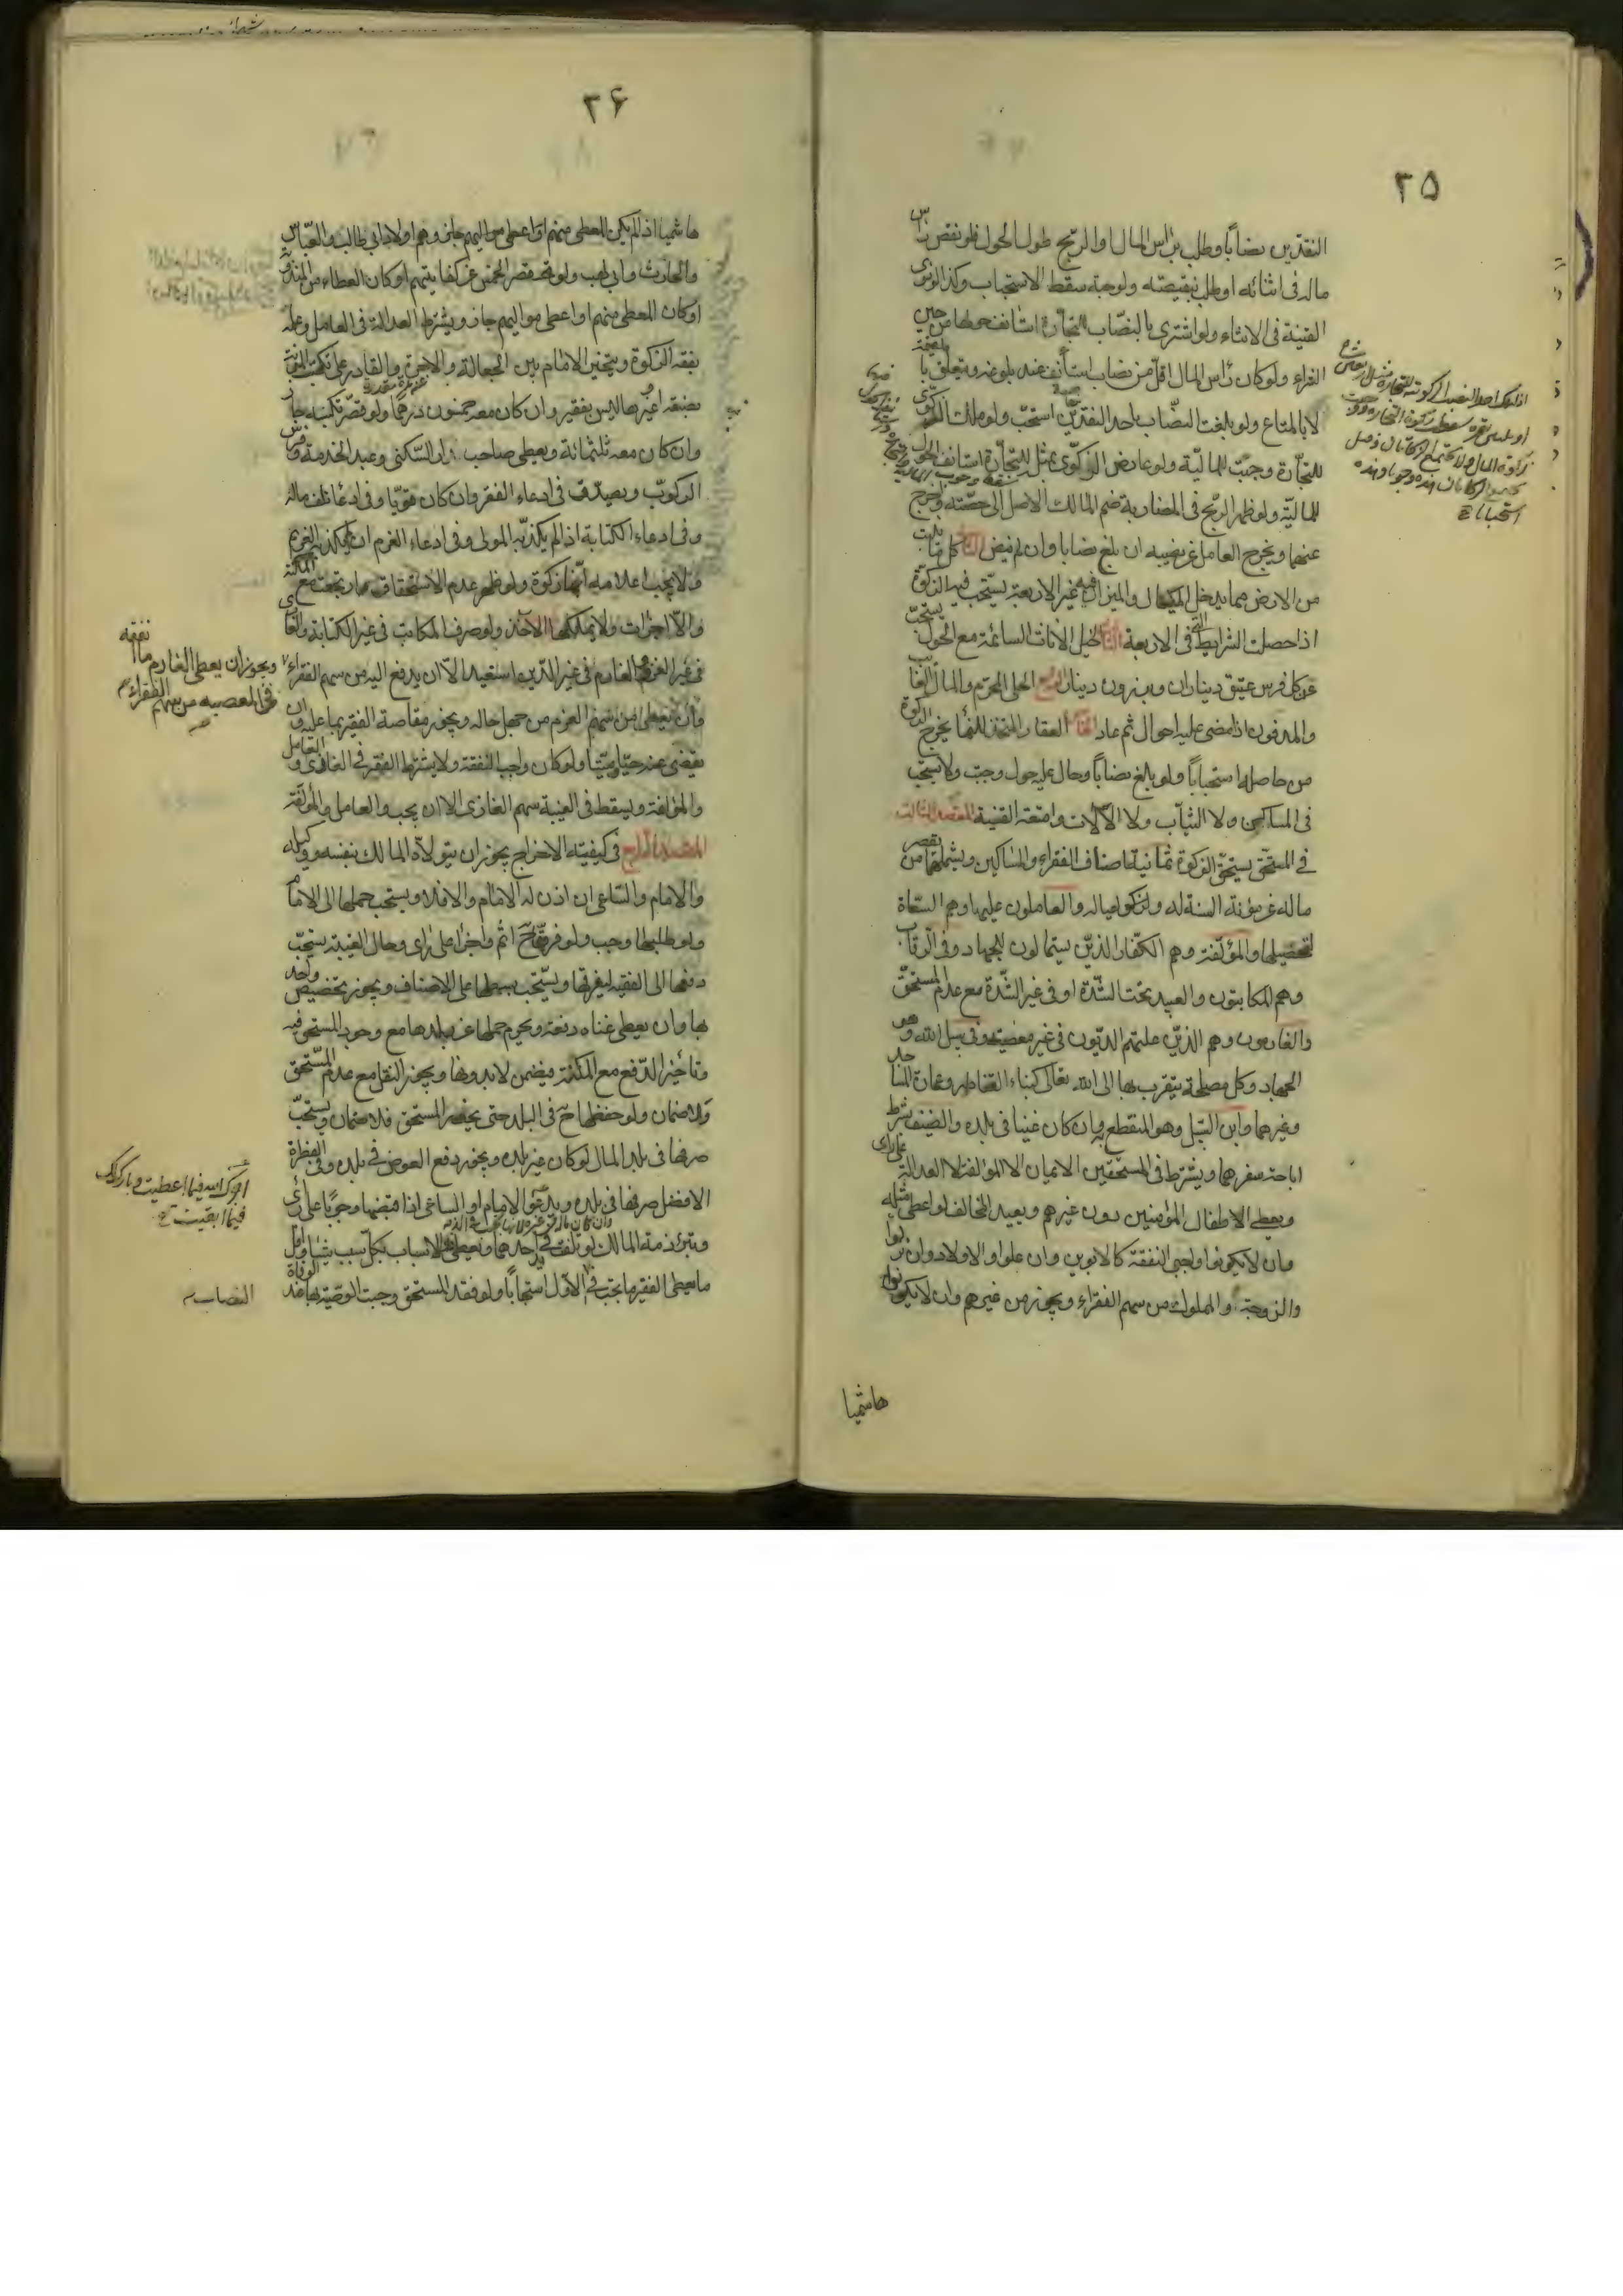 ٢٥
النقدين نصاباً وطلب براس المال او الربح طول الحول فلو نقص راس
ماله فى اثنائه او طلب بنقيصته ولو حبة سقط الاستحباب وكذا لو نوى
القنية فى الاثناء ولو اشترى بالنصاب للتجارة استانف حولها من حين
الشراء ولو كان راس المال اقل من نصاب استأنف عند بلوغه ويتعلق بالقيمة
لا بالمتاع ولو بلغت النصاب باحد النقدين استحب ولو ملك الزكوى
للتجارة وجبت المالية ولو عارض الزكوى بمثله للتجارة استانف الحول
للمالية ولو ظهر الربح فى المضاربة ضم المالك الاصل الى حصته ويخرج
عنهما ويخرج العامل عن نصيبه ان بلغ نصابا وان لم ينض الثانى كل ما ينبت
من الارض مما يدخل المكيال والميزان غير الاربعة يستحب فيه الزكوة
اذا حصلت الشرايط التى فى الاربعة الثالث الخيل الاناث السائمة مع الحول يستحب
عن كل فرس عتيق ديناران وبرذون دينار الرابع الحلى المحرم والمال الغايب
والمدفون اذا مضى عليه احوال ثم عاد الخامس العقار المتخذ للنماء يخرج الزكوة
من حاصله استحباباً ولو بلغ نصاباً وحال عليه حول وجبت ولا يستحب
فى المساكن ولا الثياب ولا الآلات وامتعة القنية المقصد الثالث
فى المستحق يستحق الزكوة ثمانية اصناف الفقراء والمساكين ويشملهما من يقصر
ماله عن مؤنة السنة له ولذكو عياله والعاملون عليها وهم السعاة
لتحصيلها والمؤلفة وهم الكفار الذين يستمالون للجهاد وفى الرقاب
وهم المكاتبون والعبيد تحت الشدة او فى غير الشدة مع عدم المستحق
والغارمون وهم الذين علتهم الديون فى غير معصية وفى سبيل الله وهو
الجهاد وكل مصلحة يتقرب بها الى الله تعالى كبناء القناطر وعمارة المساجد
وغيرهما وابن السبيل وهو المنقطع به وان كان غنيا فى بلده والضيف بشرط
اباحة سفرهما ويشترط فى المستحقين الايمان الا المؤلفة لا العدالة على راى
ويعطى الاطفال المؤمنين دون غيرهم ويعيد المخالف لو اعطى مثله
وان لا يكونوا واجبى النفقة كالابوين وان علوا والاولاد وان نزلوا
والزوجة والمملوك من سهم الفقراء ويجوز من غيرهم وان لا يكونوا
هاشميا
٢۶
هاشميا اذا لم يكن المعطى منهم او اعطى مواليهم جاز وهم اولاد ابى طالب والعباس
والحارث وابى لهب ولو قصر الخمس عن كفايتهم او كان العطاء من المندوبة
او كان المعطى منهم او اعطى مواليهم جاز ويشترط العدالة فى العامل وعلمه
بفقه الزكوة ويتخير الامام بين الجعالة والاجرة والقادر على تكسب المؤنة
بصنعة او غيرها ليس بفقير وان كان معه خمسون درهما ولو قصر تكسبه جاز
وان كان معه ثلثمائة ويعطى صاحب دار السكنى وعبد الخدمة وفرس
الركوب ويصدق فى ادعاء الفقر وان كان قويا وفى ادعاء تلف ماله
وفى ادعاء الكتابة اذا لم يكذبه المولى وفى ادعاء الغرم ان لم يكذبه الغريم
ولا يجب اعلامه انها زكوة ولو ظهر عدم الاستحقاق ارتجعت مع المكنة
والا اجزات ولا يملكها الآخذ ولو صرف المكاتب فى غير الكتابة والغازى
فى غير الغزو والغارم فى غير الدين استعيد الا ان يدفع اليه من سهم الفقراء
وان يعطى من سهم الغرم من جهل حاله ويجوز مقاصة الفقير بما عليه وان
يقضى عنه حيا وميتا ولو كان واجب النفقة ولا يشترط الفقر فى الغازى والعامل
والمؤلفة ويسقط فى الغيبة سهم الغازى الا ان يجب والعامل والمؤلفة
المقصد الرابع فى كيفية الاخراج يجوز ان يتولاه المالك بنفسه ووكيله
والامام والساعى ان اذن له الامام والا فلا ويستحب حملها الى الامام
ولو طلبها وجب ولو فرقها ح اثم واجزا على راى وحال الغيبة يستحب
دفعها الى الفقيه ليفرقها ويستحب بسطها على الاصناف ويجوز تخصيص واحد
بها وان يعطى غناه دفعة ويحرم حملها عن بلدها مع وجود المستحق فيه
وتأخير الدفع مع المكنة فيضمن لا بدونها ويجوز النقل مع عدم المستحق
ولا ضمان ولو حفظها ح فى البلد حتى يحضر المستحق فلا ضمان ويستحب
صرفها فى بلد المال لو كان غير بلده ويجوز دفع العوض فى بلده وفى الفطرة
الافضل صرفها فى بلده ويدعو الامام او الساعى اذا قبضها وجوبًا على راى
وتبرئ ذمة المالك لو تلفت فى يد احدهما ويعطى ذو الاسباب بكل سبب شيئا واقل
ما يعطى الفقير ما يجب فى الاول استحباباً ولو فقد المستحق وجبت الوصية بها عند الوفاة
ويجوز ان يعطى الغارم ما انفقه
فى المعصية من سهم الفقراء
اجرك الله فيما اعطيت وبارك لك
فيما ابقيت
النصاب